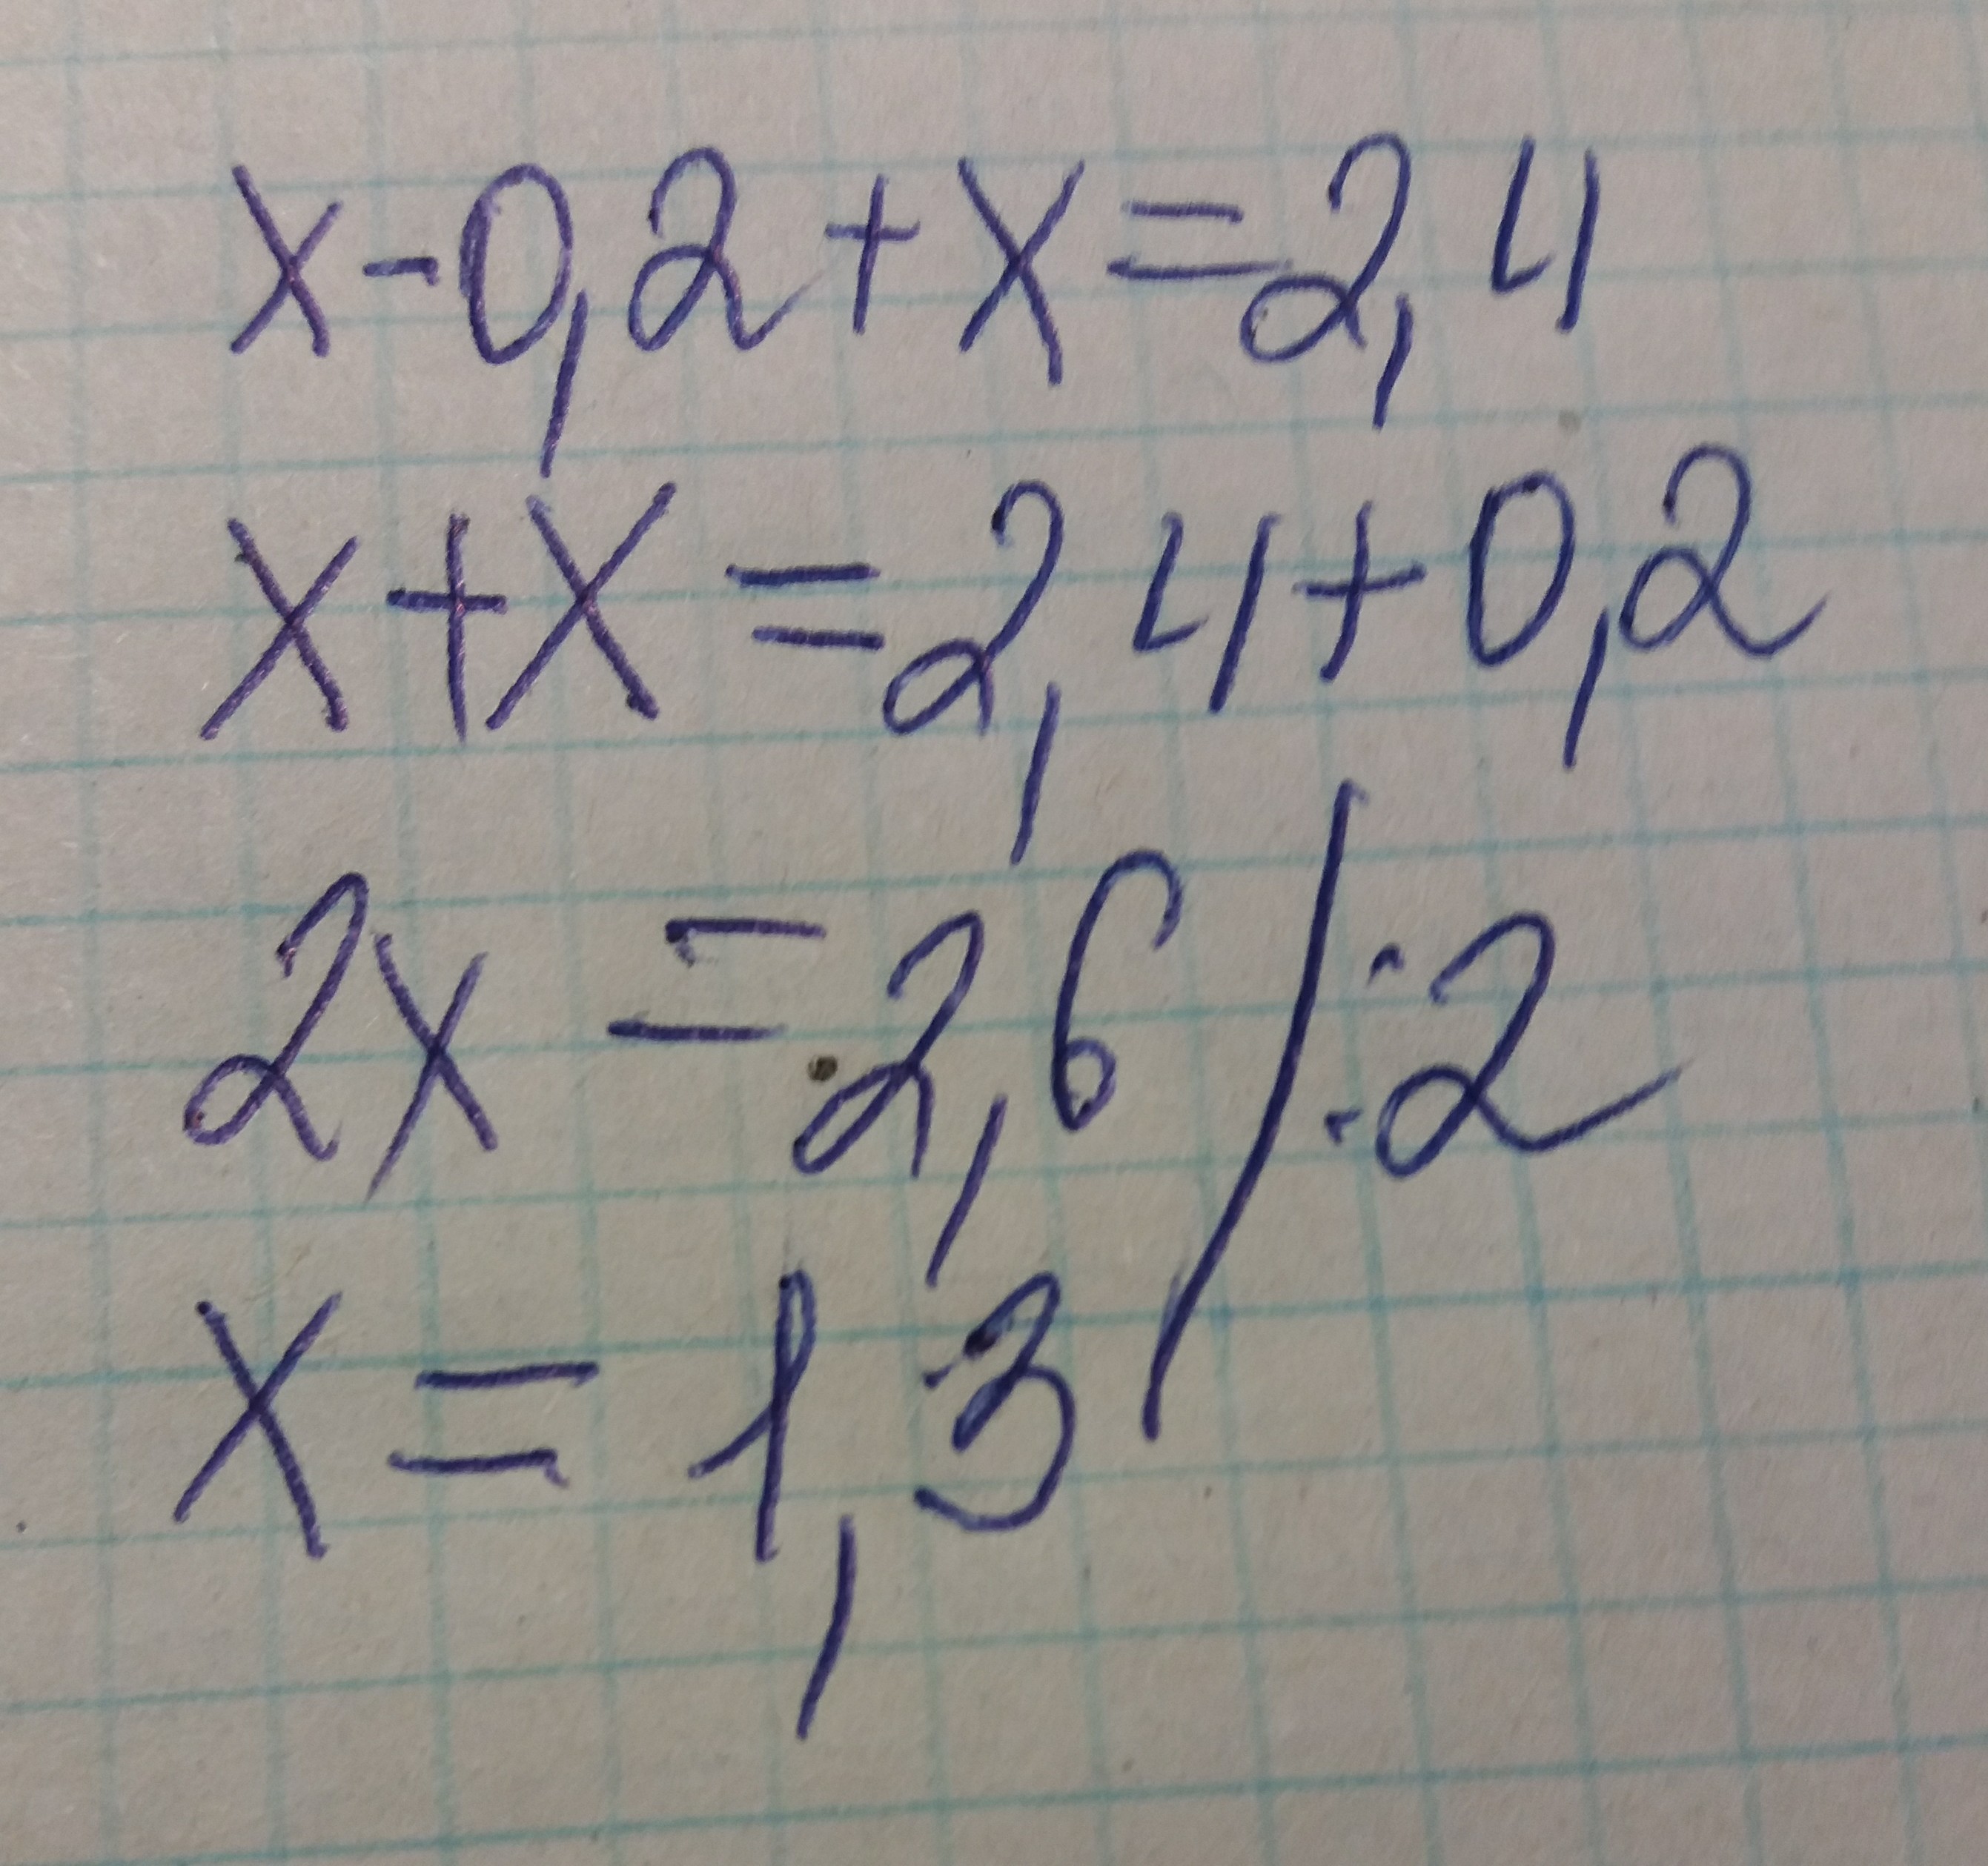 x-0,2+x=2,4
x+x=2,4+0,2
2x=2,6/:2
x=1,3